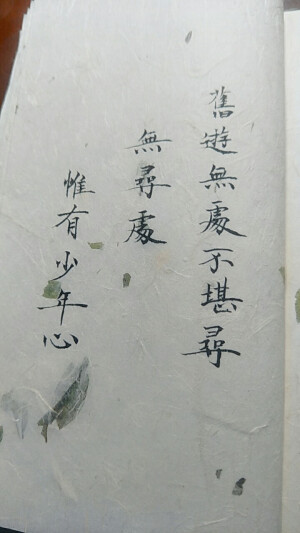 舊遊無處不堪尋
無尋處
惟有少年心